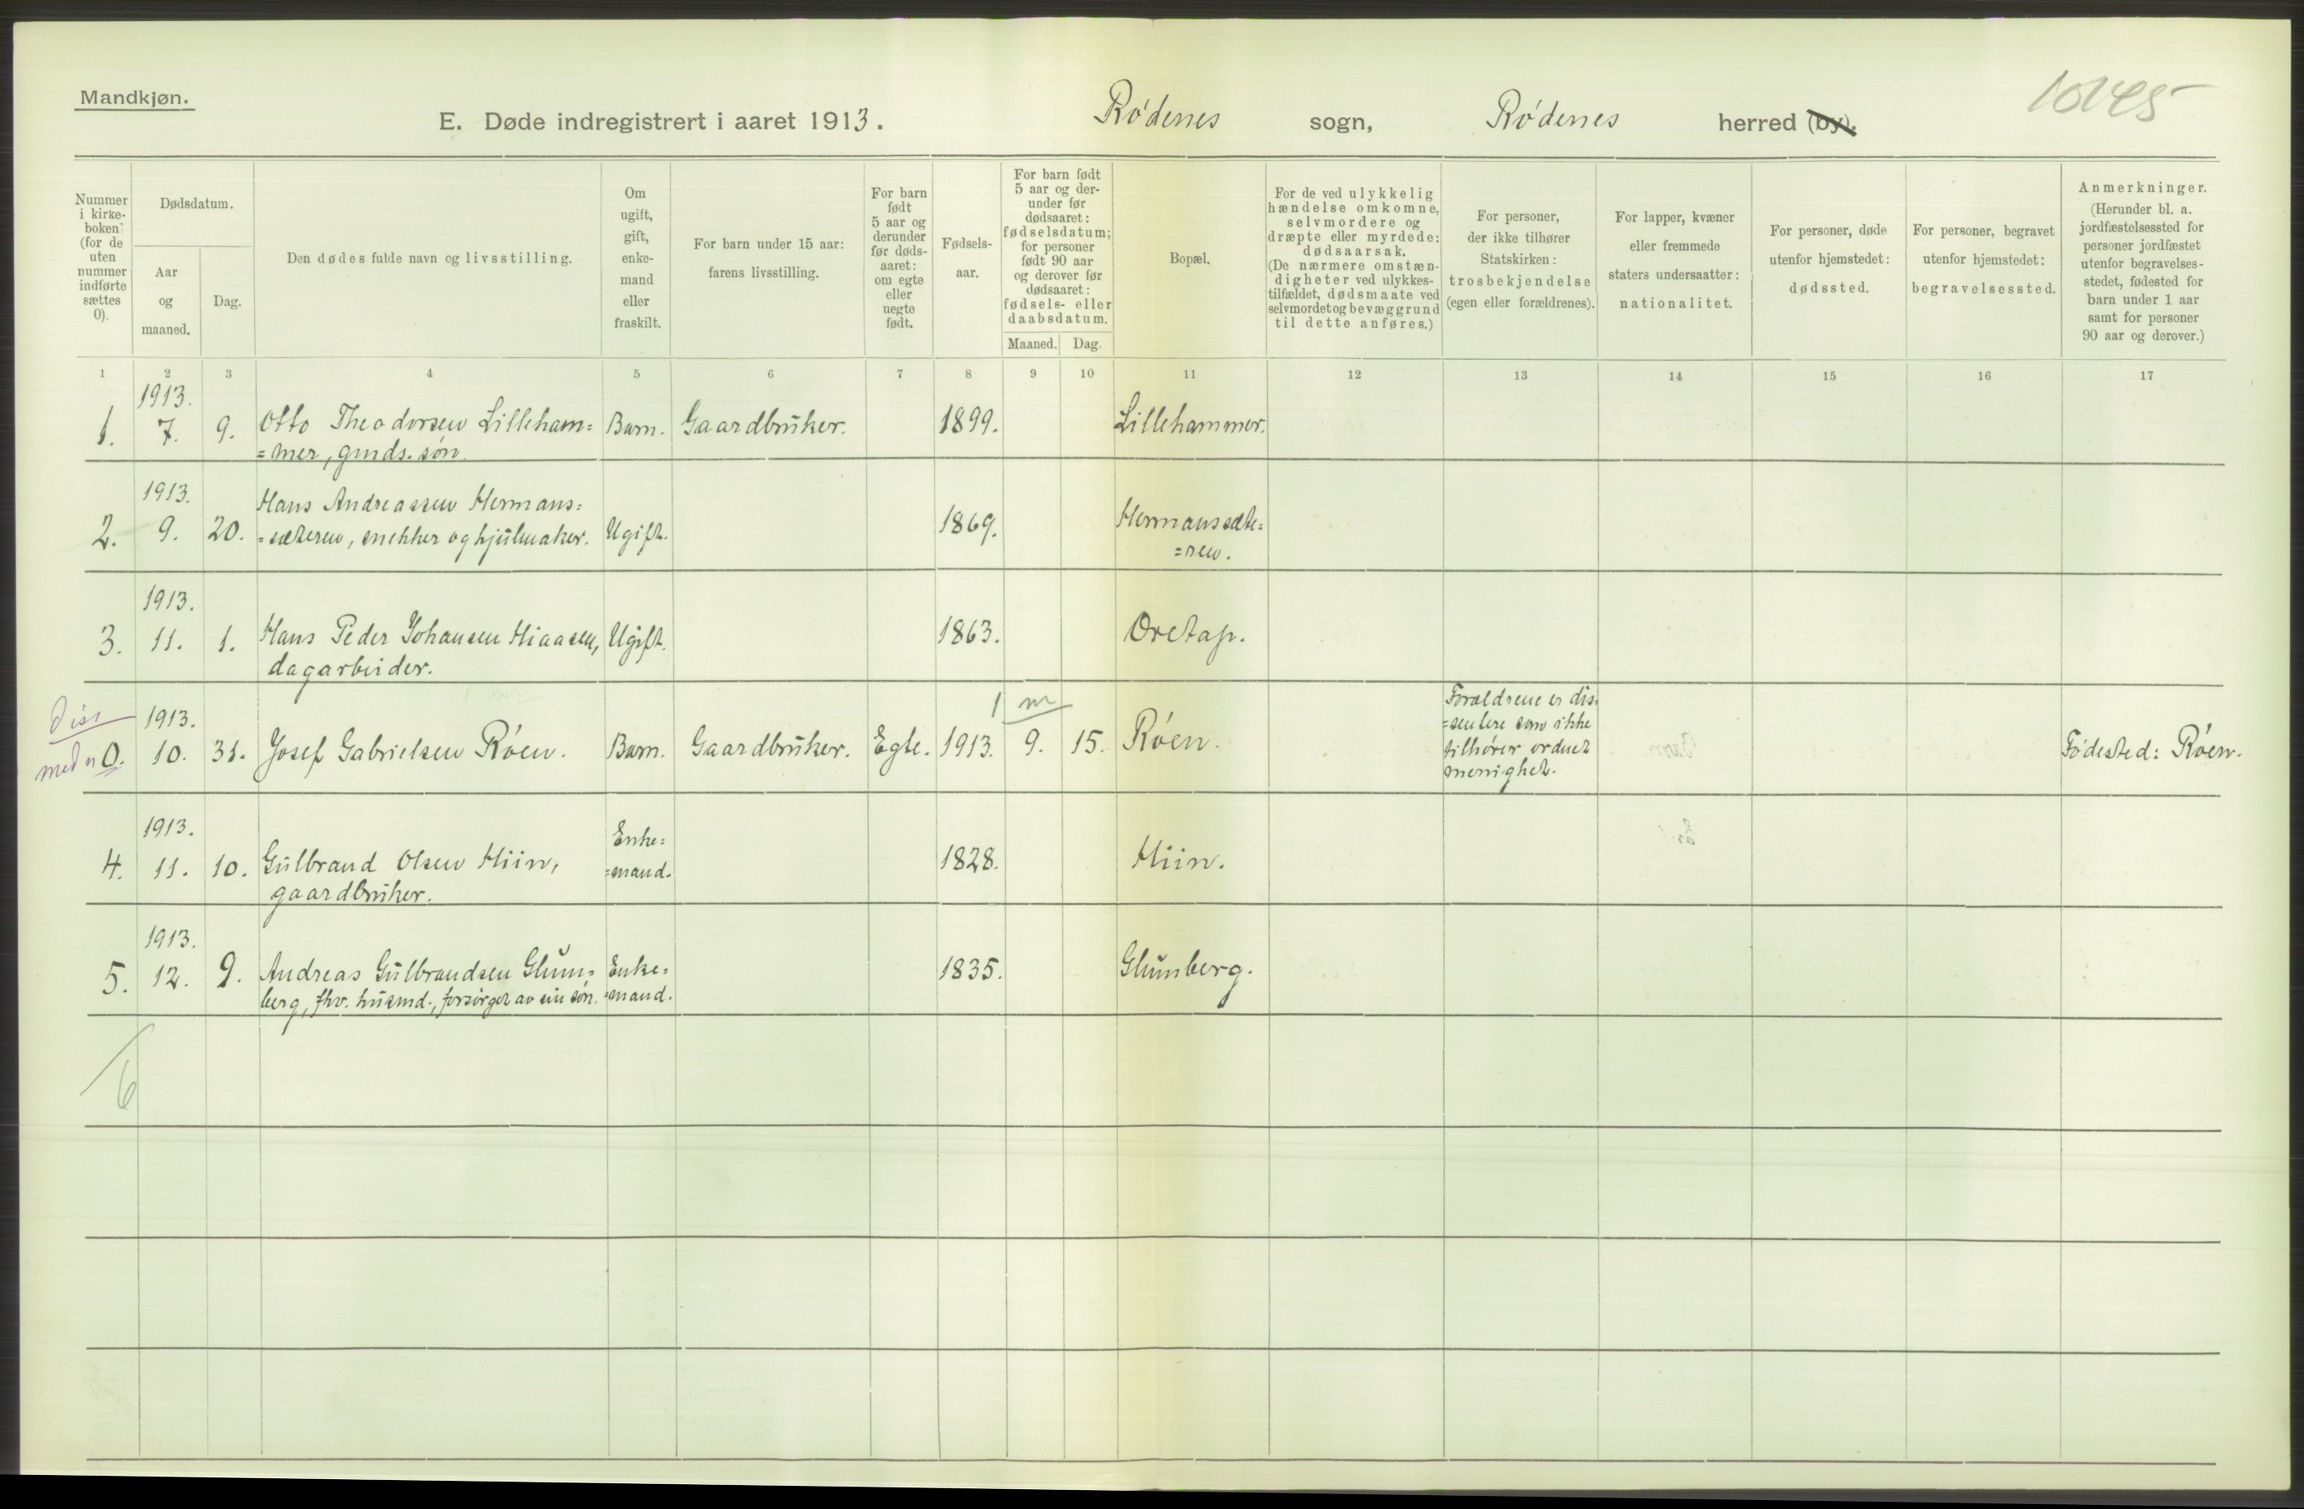 Mandkjøn.
E. Døde indregistrert i aaret 1913.
Rødenes sogn,
Rødenes herred (by).
10145
Nummer i kirke-
boken (for de
uten
nummer
indførte
sættes
0).
Dødsdatum.
Aar
og
maaned.
Dag.
Den dødes fulde navn og livsstilling.
Om
ugift,
gift,
enke-
mand
eller
fraskilt.
For barn under 15 aar:
farens livsstilling.
For barn
født
5 aar og
derunder
før døds-
aaret:
om egte
eller
uegte
født.
Fødsels-
aar.
For barn født
5 aar og der-
under før
dødsaaret:
fødselsdatum;
for personer
født 90 aar
og derover før
dødsaaret:
fødsels- eller
daabsdatum.
Maaned.
Dag.
Bopæl.
For de ved ulykkelig
hændelse omkomne,
selvmordere og
dræpte eller myrdede:
dødsaarsak.
(De nærmere omstæn-
digheter ved ulykkes-
tilfældet, dødsmaate ved
selvmordet og bevæggrund
til dette anføres.)
For personer,
der ikke tilhører
Statskirken:
trosbekjendelse
(egen eller forældrenes).
For lapper, kvæner
eller fremmede
staters undersaatter:
nationalitet.
For personer, døde
utenfor hjemstedet:
dødssted.
For personer, begravet
utenfor hjemstedet:
begravelsessted.
Anmerkninger.
(Herunder bl. a.
jordfæstelsessted for
personer jordfæstet
utenfor begravelses-
stedet, fødested for
barn under 1 aar
samt for personer
90 aar og derover.)
1 2 3 4 5 6 7 8 9 10 11 12 13 14 15 16 17
1913.
1. 7. 9. Otto Theodorsen Lilleham= Barn. Gaardbruker. 1899. Lillehammer.
=mer, gmds. søn.
1913.
Hans Andreassen Hermans=
2. 9. 20. =sæteren, snekker og hjulmaker. Ugift. 1869. Hermanssæte=
=ren.
1913.
3. 11. 1. Hans Peder Johansen Hiaasen, Ugift. 1863. Oretap.
dagarbeider.
Diss
med
1 m
1913.
0. 10. 31. Josef Gabrielsen Røen. Barn. Gaardbruker. Egte. 1913. 9. 15. Røen.
Forældrene er dis=
=sentere som ikke
tilhører ordnet
menighet.
Fødested: Røen.
1913.
4. 11. 10. Gulbrand Olsen Hiin,
gaardbruker.
Enke=
=mand.
1828. Hiin.
1913.
5. 12. 9. Andreas Gulbrandsen Glum=
berg, fhv. husmd., forsørget av sin søn.
Enke=
=mand.
1835. Glumberg.
6